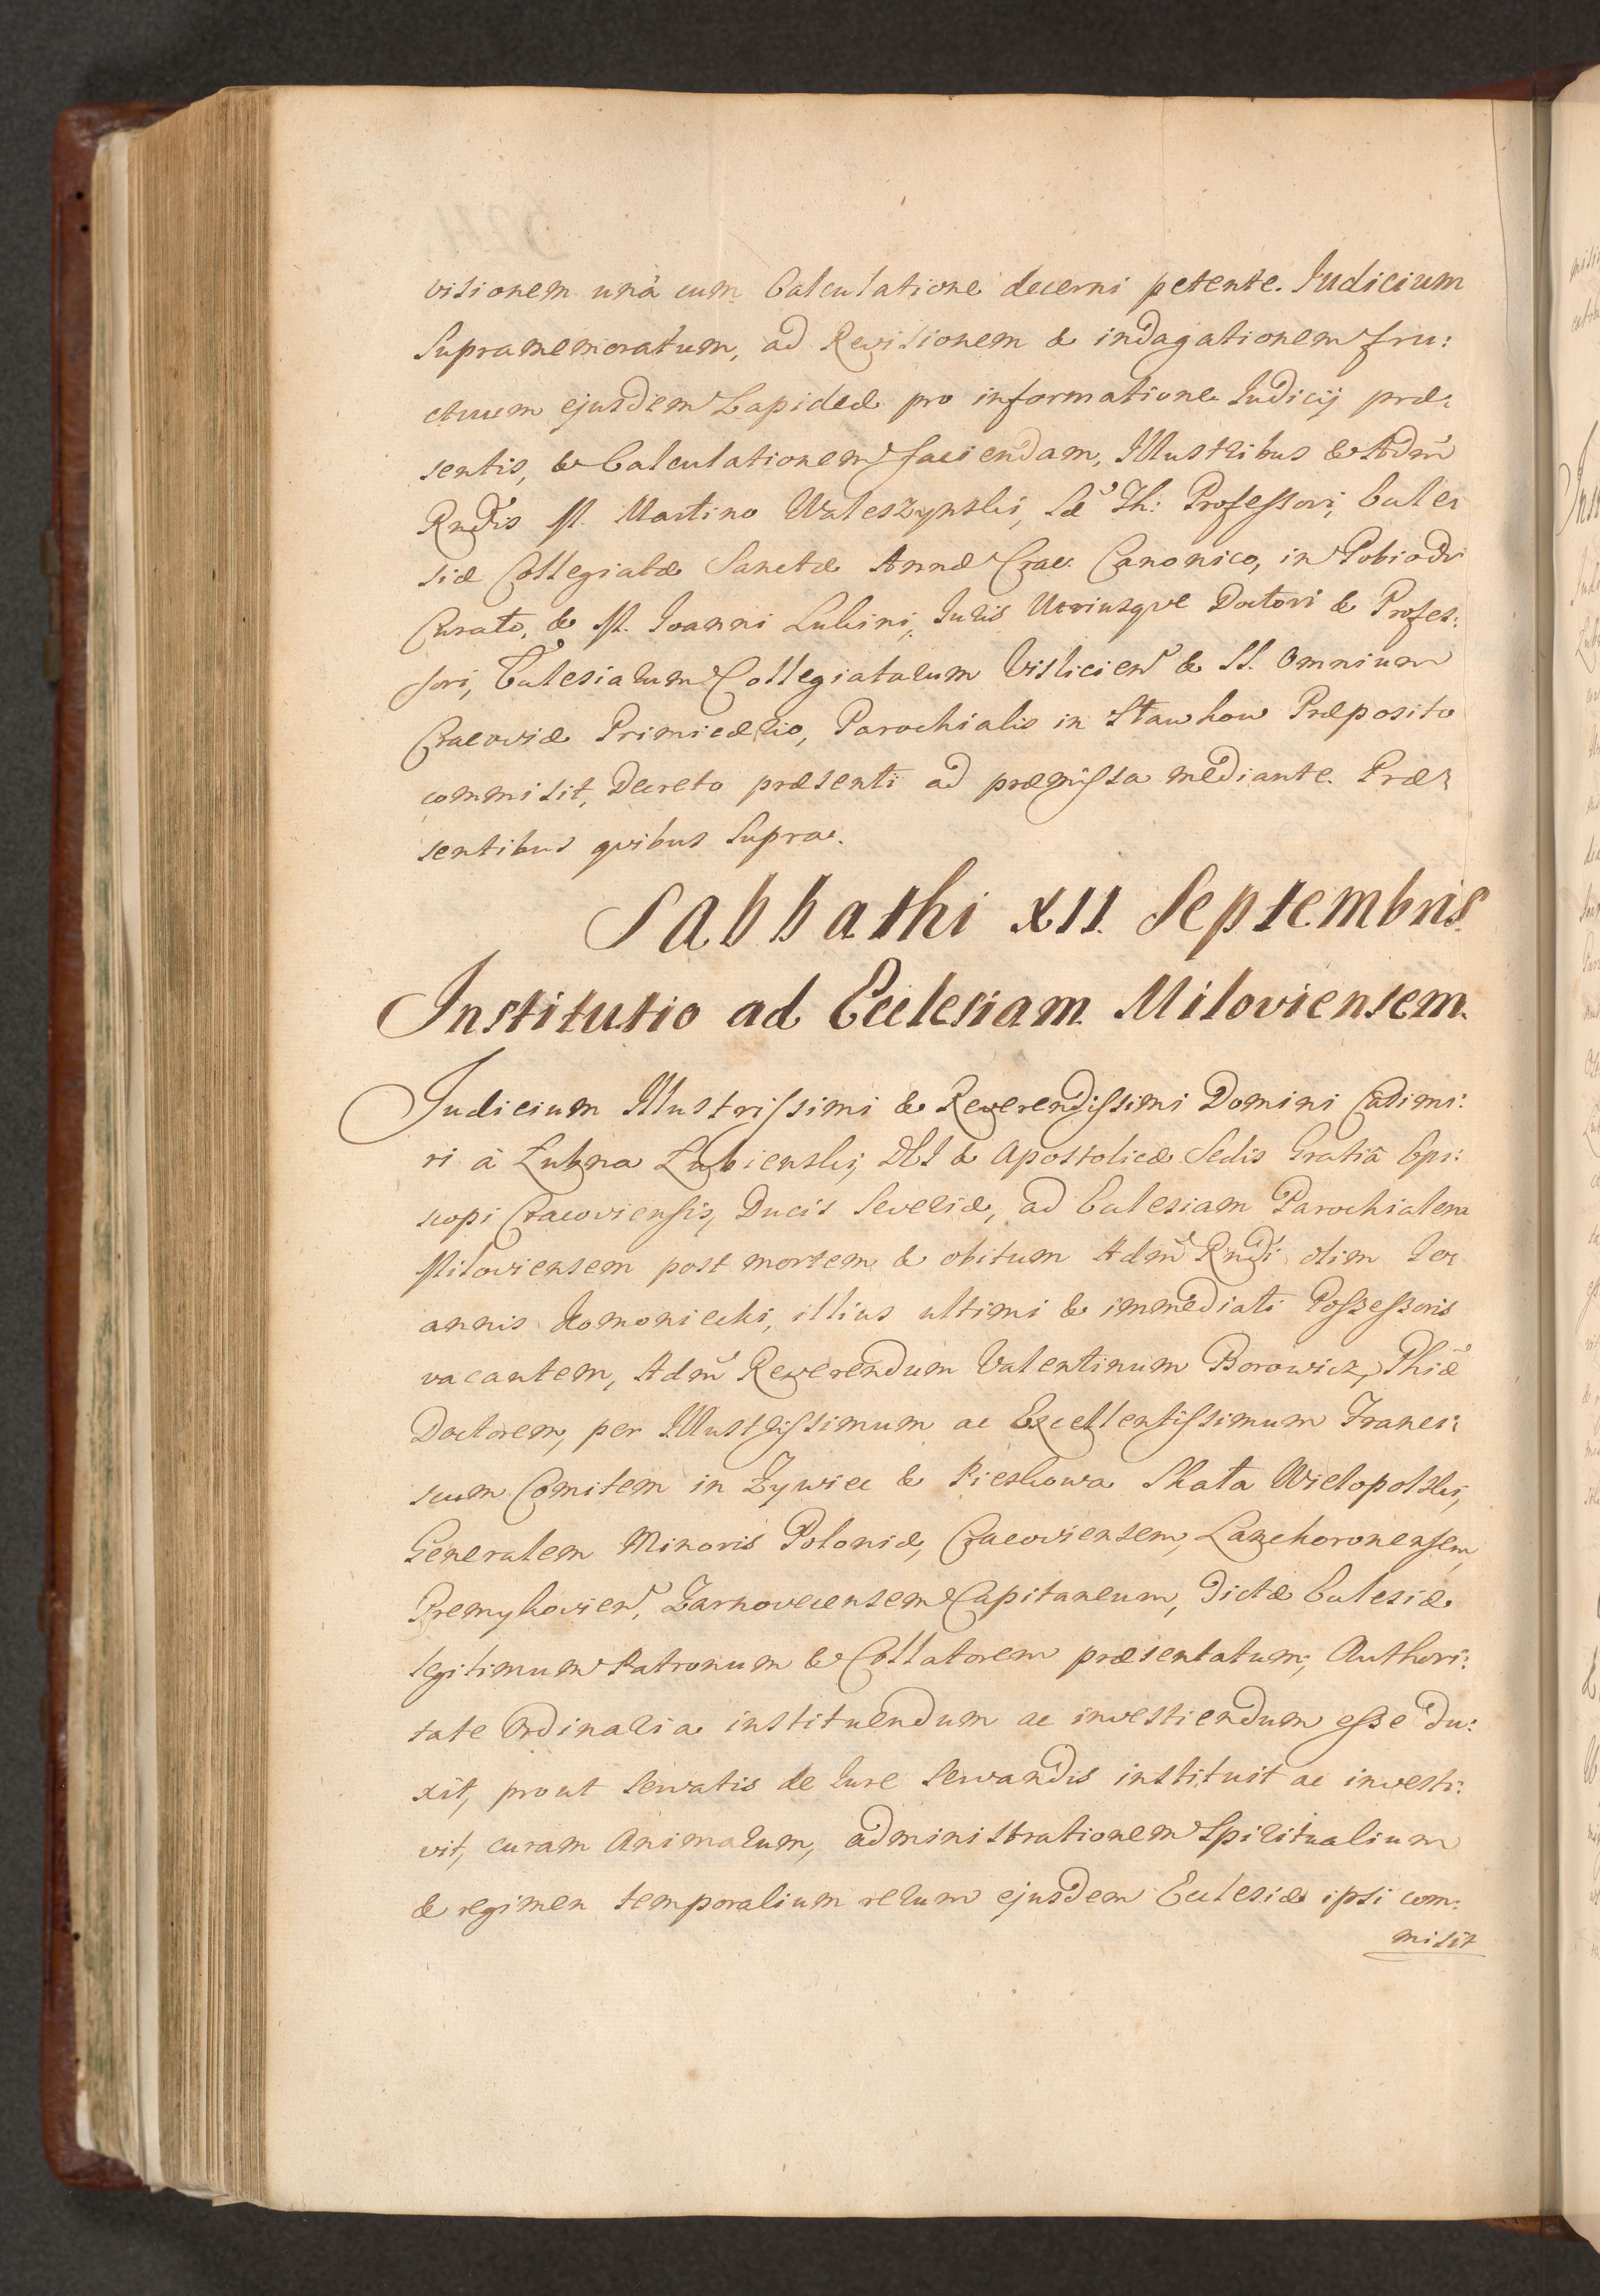 visionem unà cum Calculatione decerni petente. Iudicium
Supramemoratum, ad Revisionem & indagationem fru:
ctuum ejusdem Lapideæ pro informatione Iudicij præ:
sentis, & Calculationem faciendam, Illustribus & Adm̃
Rndis M. Martino Waleszynski, Sæ Th: Professori, Eccle:
siæ Collegiatæ Sanctæ Annæ Crac: Canonico, in Pobiedr
Curato, & M. Ioanni Lukini, Iuris Utriusqve Doctori & Profes:
sori, Ecclesiarum Collegiatarum Vislicien̄ & SS. Omnium
Cracoviæ Primicerio, Parochialis in Stawkow Præposito
commisit, Decreto præsenti ad præmissa mediante. Præ:
sentibus qvibus supra.
Sabbathi XII. Septembris.
Institutio ad Ecclesiam Miloviensem.
Iudicium Illustrissimi & Reverendissimi Domini Casimi:
ri à Łubna Łubienski, DEI & Apostolicæ Sedis Gratiâ Epi:
scopi Cracoviensis, Ducis Severiæ, ad Ecclesiam Parochialem
Miloviensem post mortem & obitum Adm̃ Rndi olim Io:
annis Komoniecki, illius ultimi & immediati Possessoris
vacantem, Adm̃ Reverendum Valentinum Borowicz, Phiæ
Doctorem, per Illustrissimum ac Excellentissimum Franci:
scum Comitem in Zywiec & Pieskowa Skała Wielopolski,
Generalem Minoris Poloniæ, Cracoviensem, Lanckoronensem,
Premykovien̄, Zarnovecensem Capitaneum, dictæ Ecclesiæ
legitimum Patronum & Collatorem præsentatum, Authori:
tate Ordinaria instituendum ac investiendum esse du:
xit, prout servatis de Iure servandis instituit ac investi:
vit, curam Animarum, administrationem Spiritualium
& regimen temporalium rerum ejusdem Ecclesiæ ipsi com:
misit